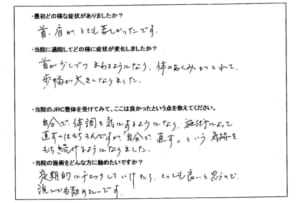 ・最初どの様な症状がありましたか？
首、肩が とても苦しかったです。
・当院に通院してどの様に症状が変化しましたか？
首が少しづつまわるようになり、体のあくみがとれて、
歩幅が大きくなりました。
・当院のJRC整体を受けてみて、ここは良かったという点を教えてください。
自分で体調を気にするようになり、施術によって
直すのはもちろんですが「自分で 直す」という意識を
もち続けるようになりました。
・当院の施術をどんな方に勧めたいですか？
定期的にチェックしていけたら、とっても良いと思うので、
誰にでも勧めたいです。